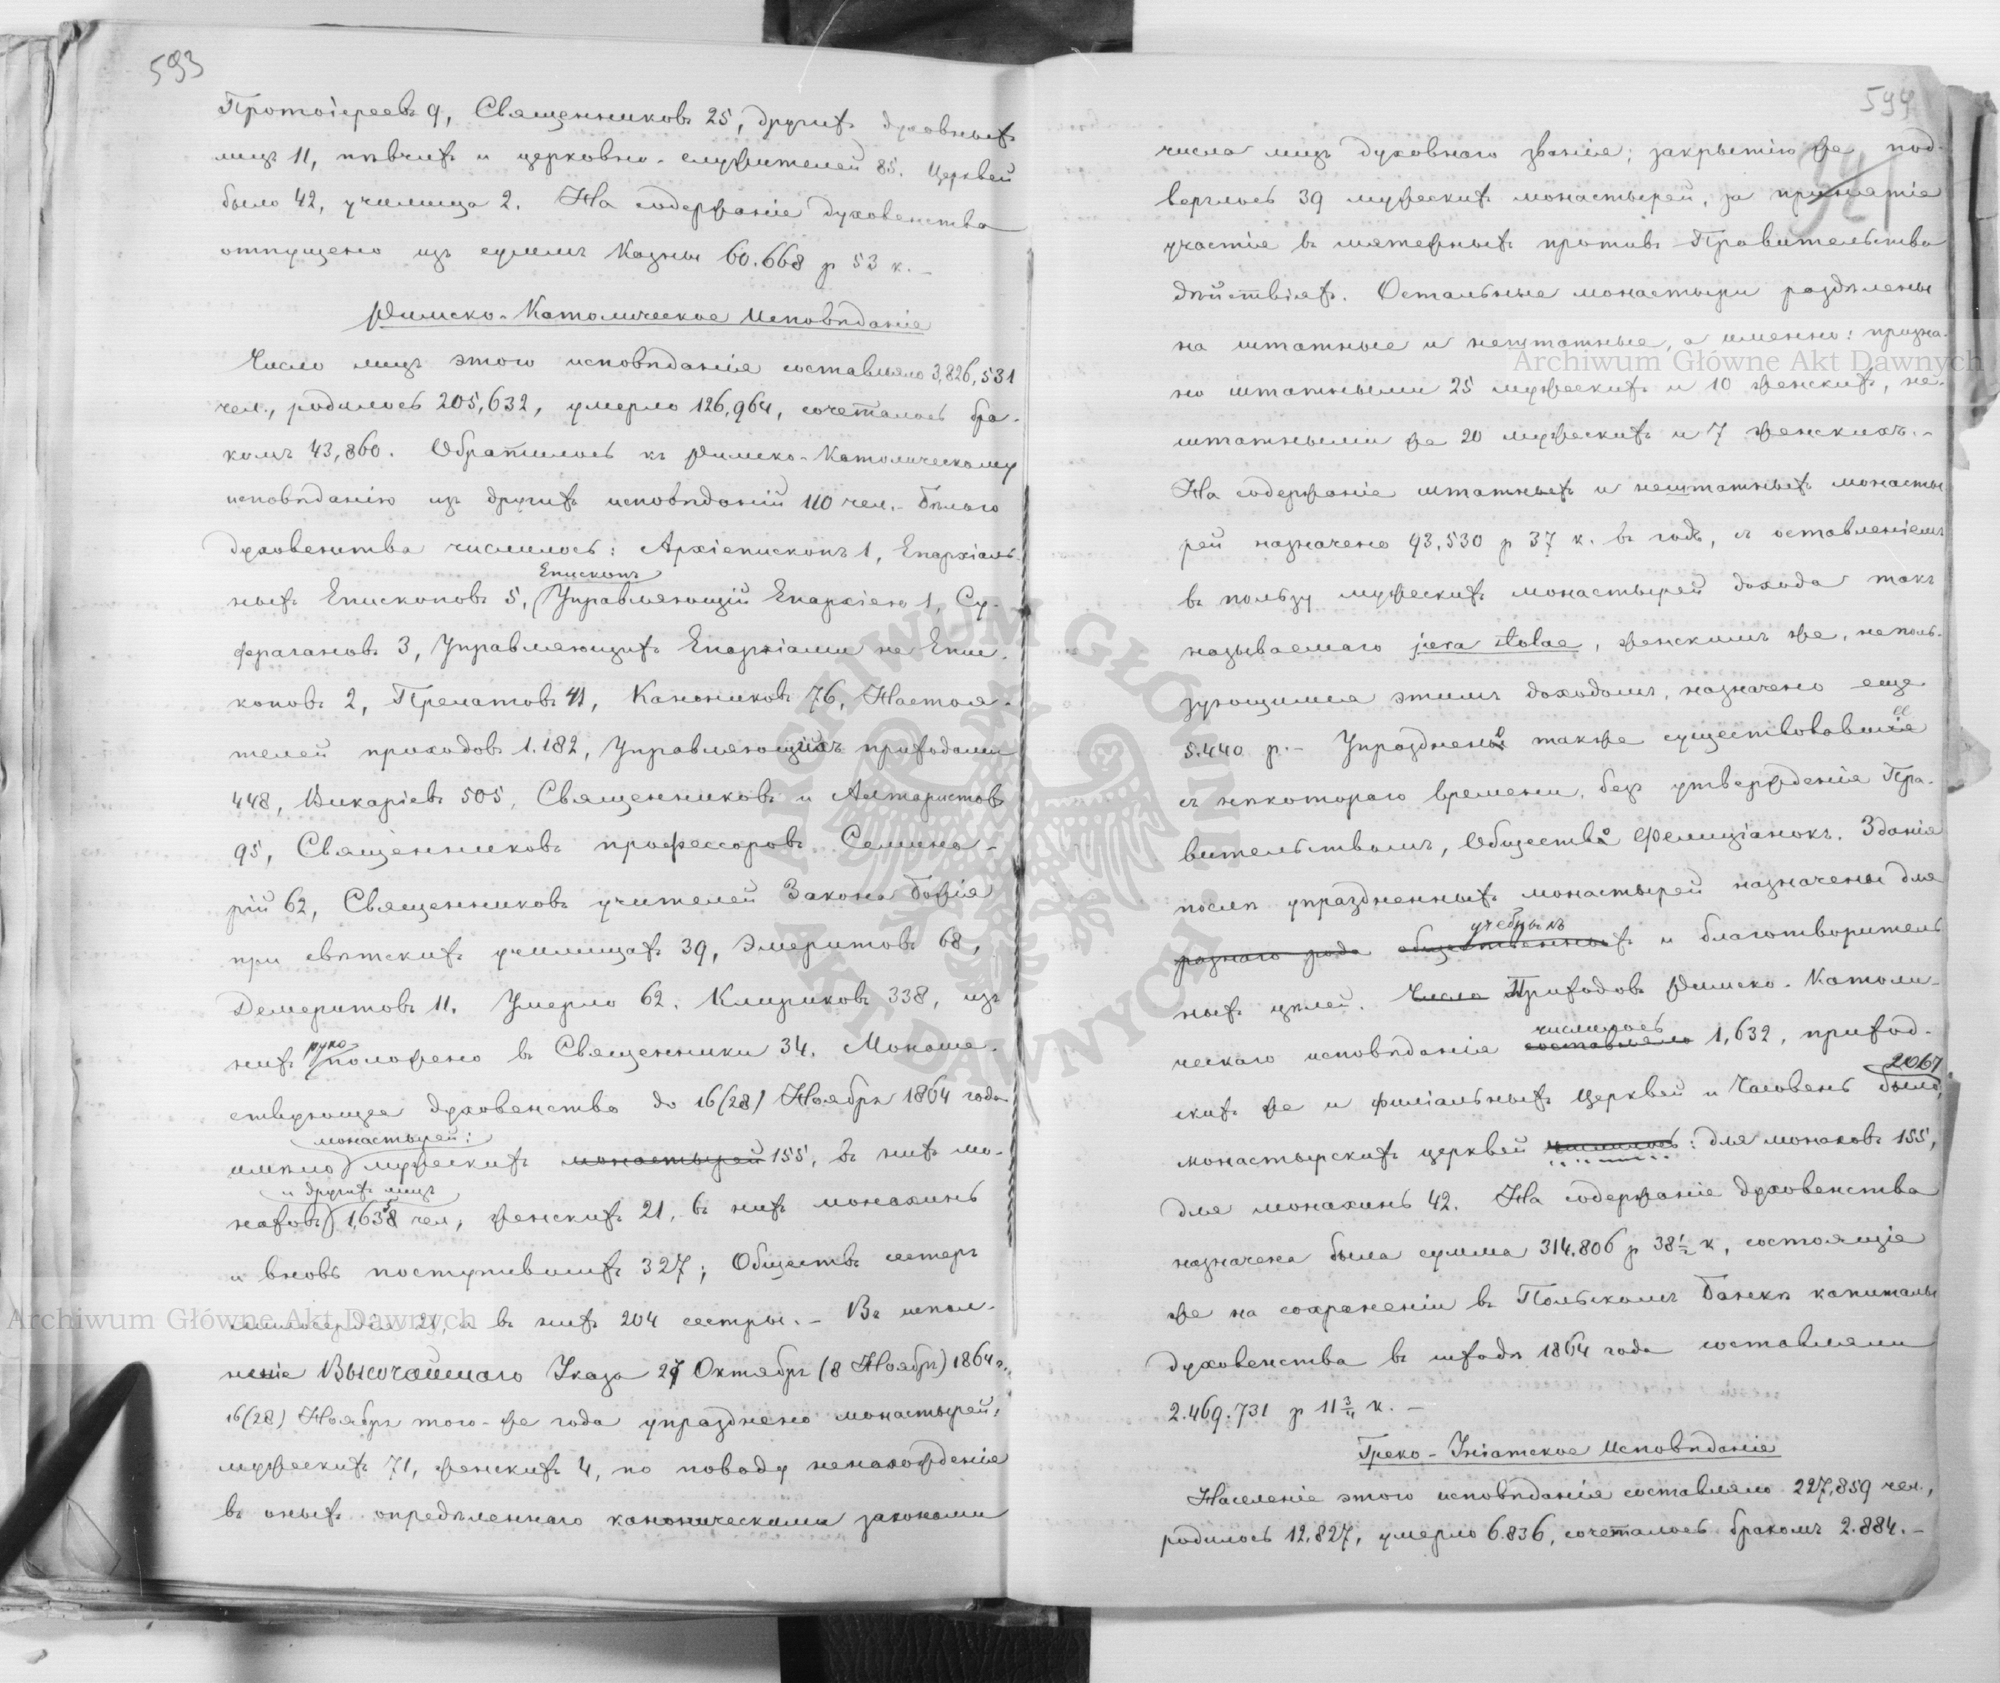 593
Протоіереевъ 9, Священниковъ 25, другихъ духовныхъ
лицъ 11, пѣвчихъ и церковно-служителей 85. Церквей
было 42, училища 2. На содержаніе духовенства
отпущено изъ суммъ Казны 60.668 р 53 к. –
Римско-Католическое Исповѣданіе
Число лицъ этого исповѣданія составляло 3,826,531
чел., родилось 205,632, умерло 126,964, сочеталось бра-
комъ 43,860. Обратилось къ Римско-Католическому
исповѣданію изъ другихъ исповѣданій 110 чел. – Бѣлаго
духовенства числилось: Архіепископъ 1, Епархіаль-
Епископъ
ныхъ Епископовъ 5, Управляющій Епархіею 1, Су-
фрагановъ 3, Управляющихъ Епархіами не Епис-
коповъ 2, Прелатовъ 41, Канониковъ 76, Настоя-
телей приходовъ 1.182, Управляющихъ приходами
448, Викаріевъ 505, Священниковъ и Алтаристовъ
95, Священниковъ профессоровъ Семина-
рій 62, Священниковъ учителей Закона Божія
при свѣтскихъ училищахъ 39, Эмеритовъ 68,
Демеритовъ 11. Умерло 62. Клириковъ 338, изъ
руко
нихъ положено въ Священники 34. Монаше-
ствующее духовенство до 16(28) Ноября 1864 года
монастырей:
имѣло мужескихъ монастырей 155, въ нихъ мо-
и другихъ лицъ
наховъ 1,638 чел; женскихъ 21, въ нихъ монахинь
и вновь поступившихъ 327; Обществъ сестеръ
милосердія 21, а въ нихъ 204 сестры. – Въ испол-
неніе Высочайшаго Указа 27 Октября (8 Ноября) 1864 г.,
16(28) Ноября того-же года упразднено монастырей:
мужескихъ 71, женскихъ 4, по поводу ненахожденія
въ оныхъ опредѣленнаго каноническими законами
594
числа лицъ духовнаго званія; закрытію же под-
верглось 39 мужескихъ монастырей, за принятіе
участія въ мятежныхъ противъ Правительства
дѣйствіяхъ. Остальные монастыри раздѣлены
на штатные и нештатные, а именно: призна-
но штатными 25 мужескихъ и 10 женскихъ, не-
штатными же 20 мужескихъ и 7 женскихъ. –
На содержаніе штатныхъ и нештатныхъ монасты
рей назначено 93,530 р 37 к. въ годъ, съ оставленіемъ
въ пользу мужескихъ монастырей дохода такъ
называемаго jura stolae, женскимъ же, неполь-
зующимся этимъ доходомъ, назначено еще
5.440 р. – Упразднено также существовавшее
съ нѣкотораго времени, безъ утвержденія Пра-
вительствомъ, Общество Фелиціанокъ. Зданія
послѣ упраздненныхъ монастырей назначены для
учебныхъ
разнаго рода общественныхъ и благотворитель
ныхъ цѣлей. Число Приходовъ Римско-Католи-
числилось
ческаго исповѣданія составляло 1,632, приход-
2067
скихъ же и филіальныхъ Церквей и Часовень было,
монастырскихъ церквей числилось: для монаховъ 155,
для монахинь 42. На содержаніе духовенства
назначена была сумма 314.806 р 38½ к, состоящіе
же на сохраненіи въ Польскомъ Банкѣ капиталы
духовенства въ исходѣ 1864 года составляли
2.469.731 р 11¾ к. –
Греко-Уніатское Исповѣданіе
Населеніе этого исповѣданія составляло 227,859 чел.,
родилось 12.827, умерло 6.836, сочеталось бракомъ 2.884. –
Archiwum Główne Akt Dawnych
Archiwum Główne Akt Dawnych
ARCHIWUM GŁÓWNE AKT DAWNYCH